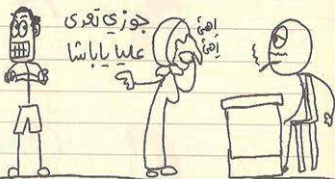 جوزي تعدى
عليا يا باشا
اهئ
إهئ